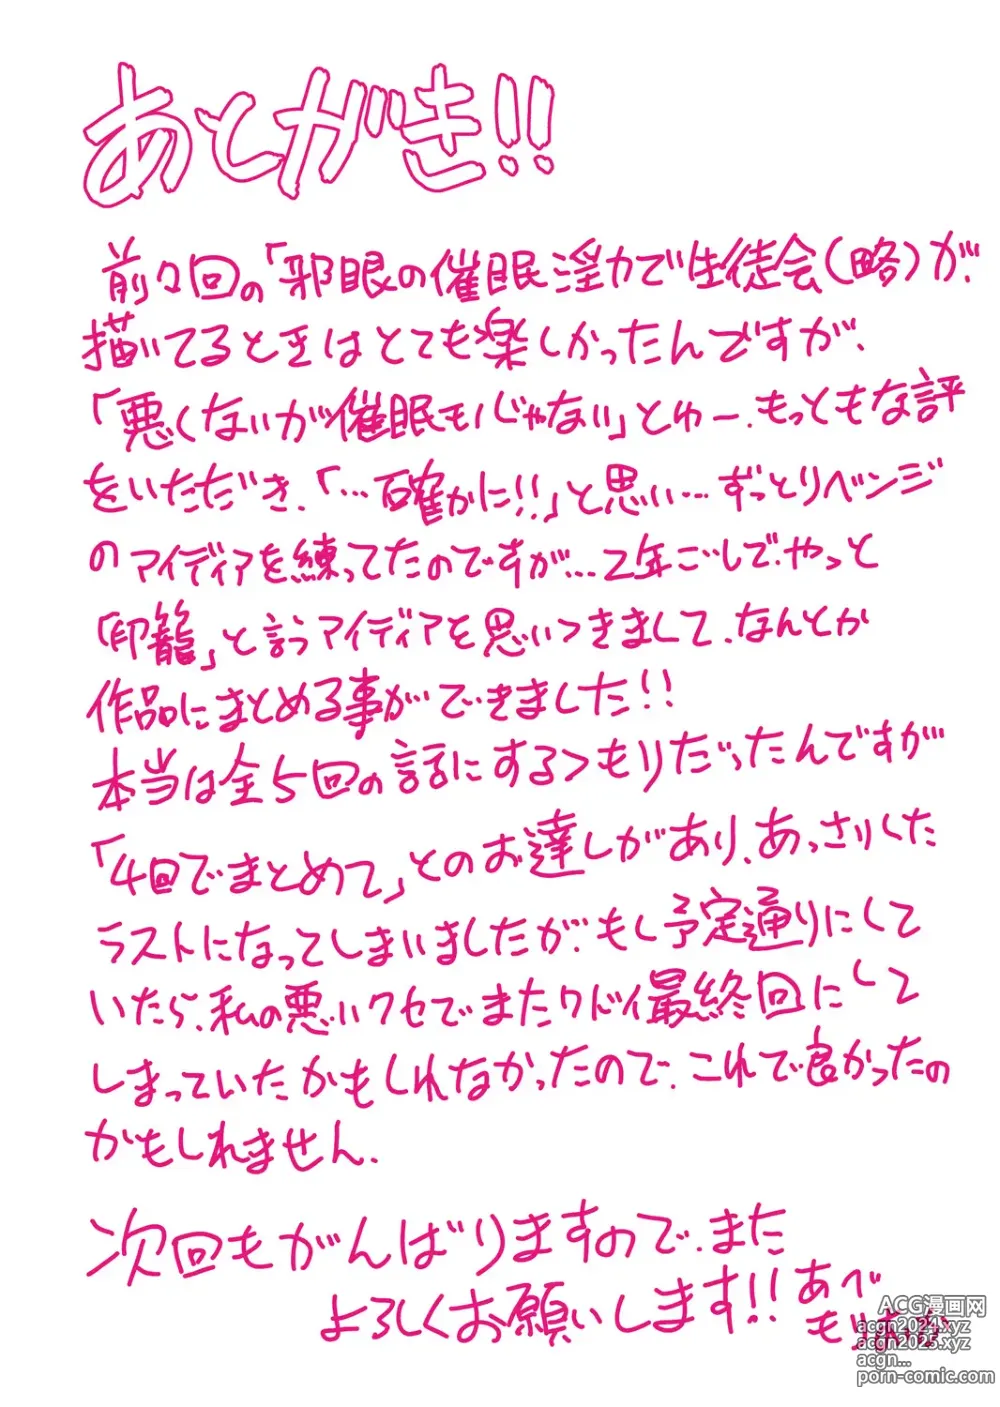 あとがき!!
前々回の「邪眼の催眠淫力で生徒会(略)」が、
描いてるときはとても楽しかったんですが、
「悪くないが催眠モノじゃない」とゆー、もっともな評
をいただき、「…確かに!!」と思い…ずっとリベンジ
のアイディアを練ってたのですが…2年ごしで、やっと
「印籠」と言うアイディアを思いつきまして、なんとか
作品にまとめる事ができました!!
本当は全5回の話にするつもりだったんですが
「4回でまとめて」とのお達しがあり、あっさりした
ラストになってしまいましたが、もし予定通りにして
いたら、私の悪いクセでまたクドイ最終回にして
しまっていたかもしれなかったので、これで良かったの
かもしれません.
次回もがんばりますので、また
よろしくお願いします!!
あべ
もりおか
ACG漫画网
acgn2024.xyz
acgn2025.xyz
acgn...
porn-comic.com